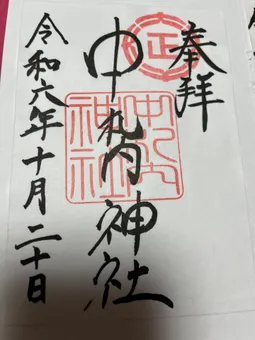 奉拝
中札内神社
令和六年十月二十日
中札内
神社